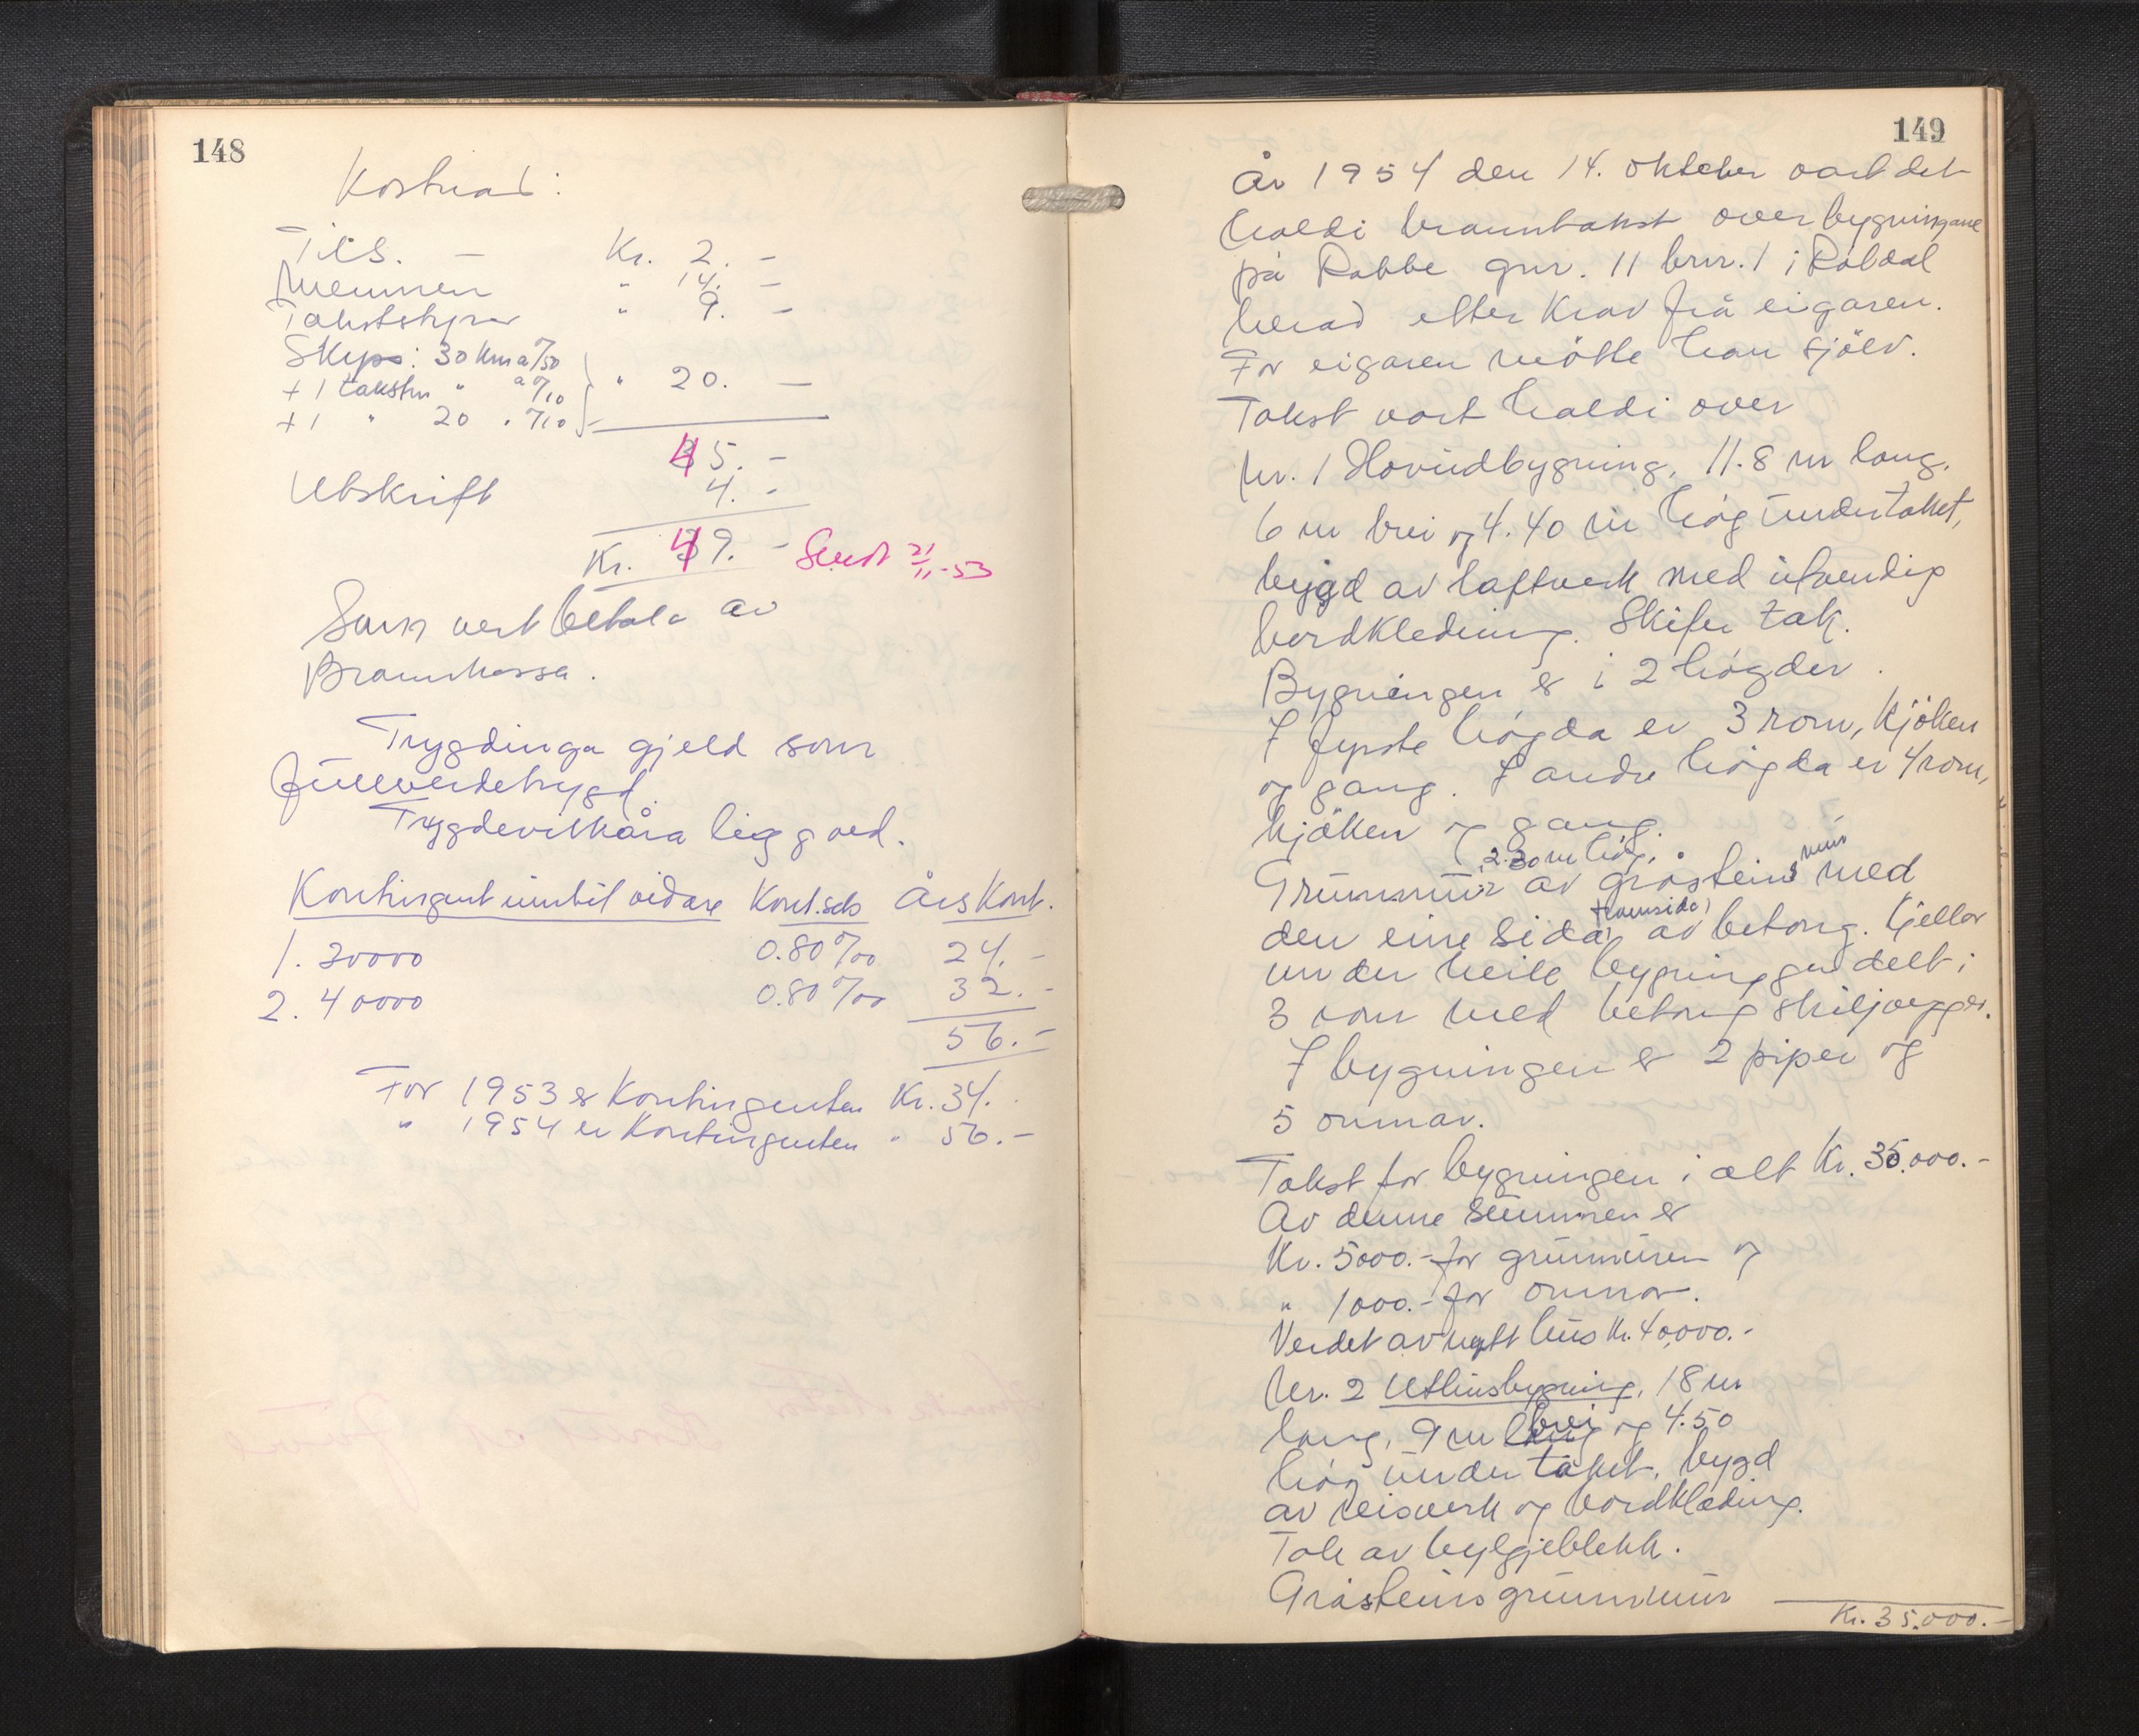 148
Kostnad:
Tils. — Kr. 2. –
Nemnen " 14. –
Takststyrar " 9. –
Skyss: 30 km a 0/50
+ 1 takstm " a 0/10 " 20. —
+ 1 " 20 " 0/10
45. –
Utskrift 4. –
Kr. 49. – Sendt 21/11-53
Som vert betala av
Brannkassa.
Trygdinga gjeld som
fullverdetrygd.
Trygdevilkåra ligg ved.
Kontingent inntil vidare Kont.sats Års Kont.
1. 30000 0.80 ‰ 24. –
2. 40000 0.80 ‰ 32. –
56. –
For 1953 er Kontingenten Kr. 34.
" 1954 er Kontingenten " 56. –
149
År 1954 den 14. oktober vart det
haldi branntakst over bygningane
på Rabbe gnr. 11 brnr. 1 i
herad etter krav frå eigaren.
For eigaren møtte han sjølv.
Takst vart haldi over
Nr. 1 Hovudbygning, 11.8 m lang,
6 m brei og 4.40 m høg under taket,
bygd av laftverk med utvendig
bordkledning. Skifer tak.
Bygningen er i 2 høgder.
I fyrste høgda er 3 rom, kjøken
og gang. I andre høgda er 4 rom,
kjøken og gang.
2.30 m høg,
Grunnmur av gråsteins mur med
den eine sida (framsida) av betong. Kjellar
under heile bygningen delt i
3 rom med betong skiljevegger.
I bygningen er 2 piper og
5 omnar.
Takst for bygningen i alt Kr. 35.000.–
Av denne summen er
Kr. 5000.– for grunnmuren og
" 1000.– for omnar.
Verdet av nytt hus Kr. 40,000.–
Nr. 2 Uthusbygning, 18 m
lang, 9 m brei og 4.50
høg under taket, bygd
av reisverk og bordklæding.
Tak av bylgjeblekk.
Gråsteins grunnmur
Kr. 35.000.–